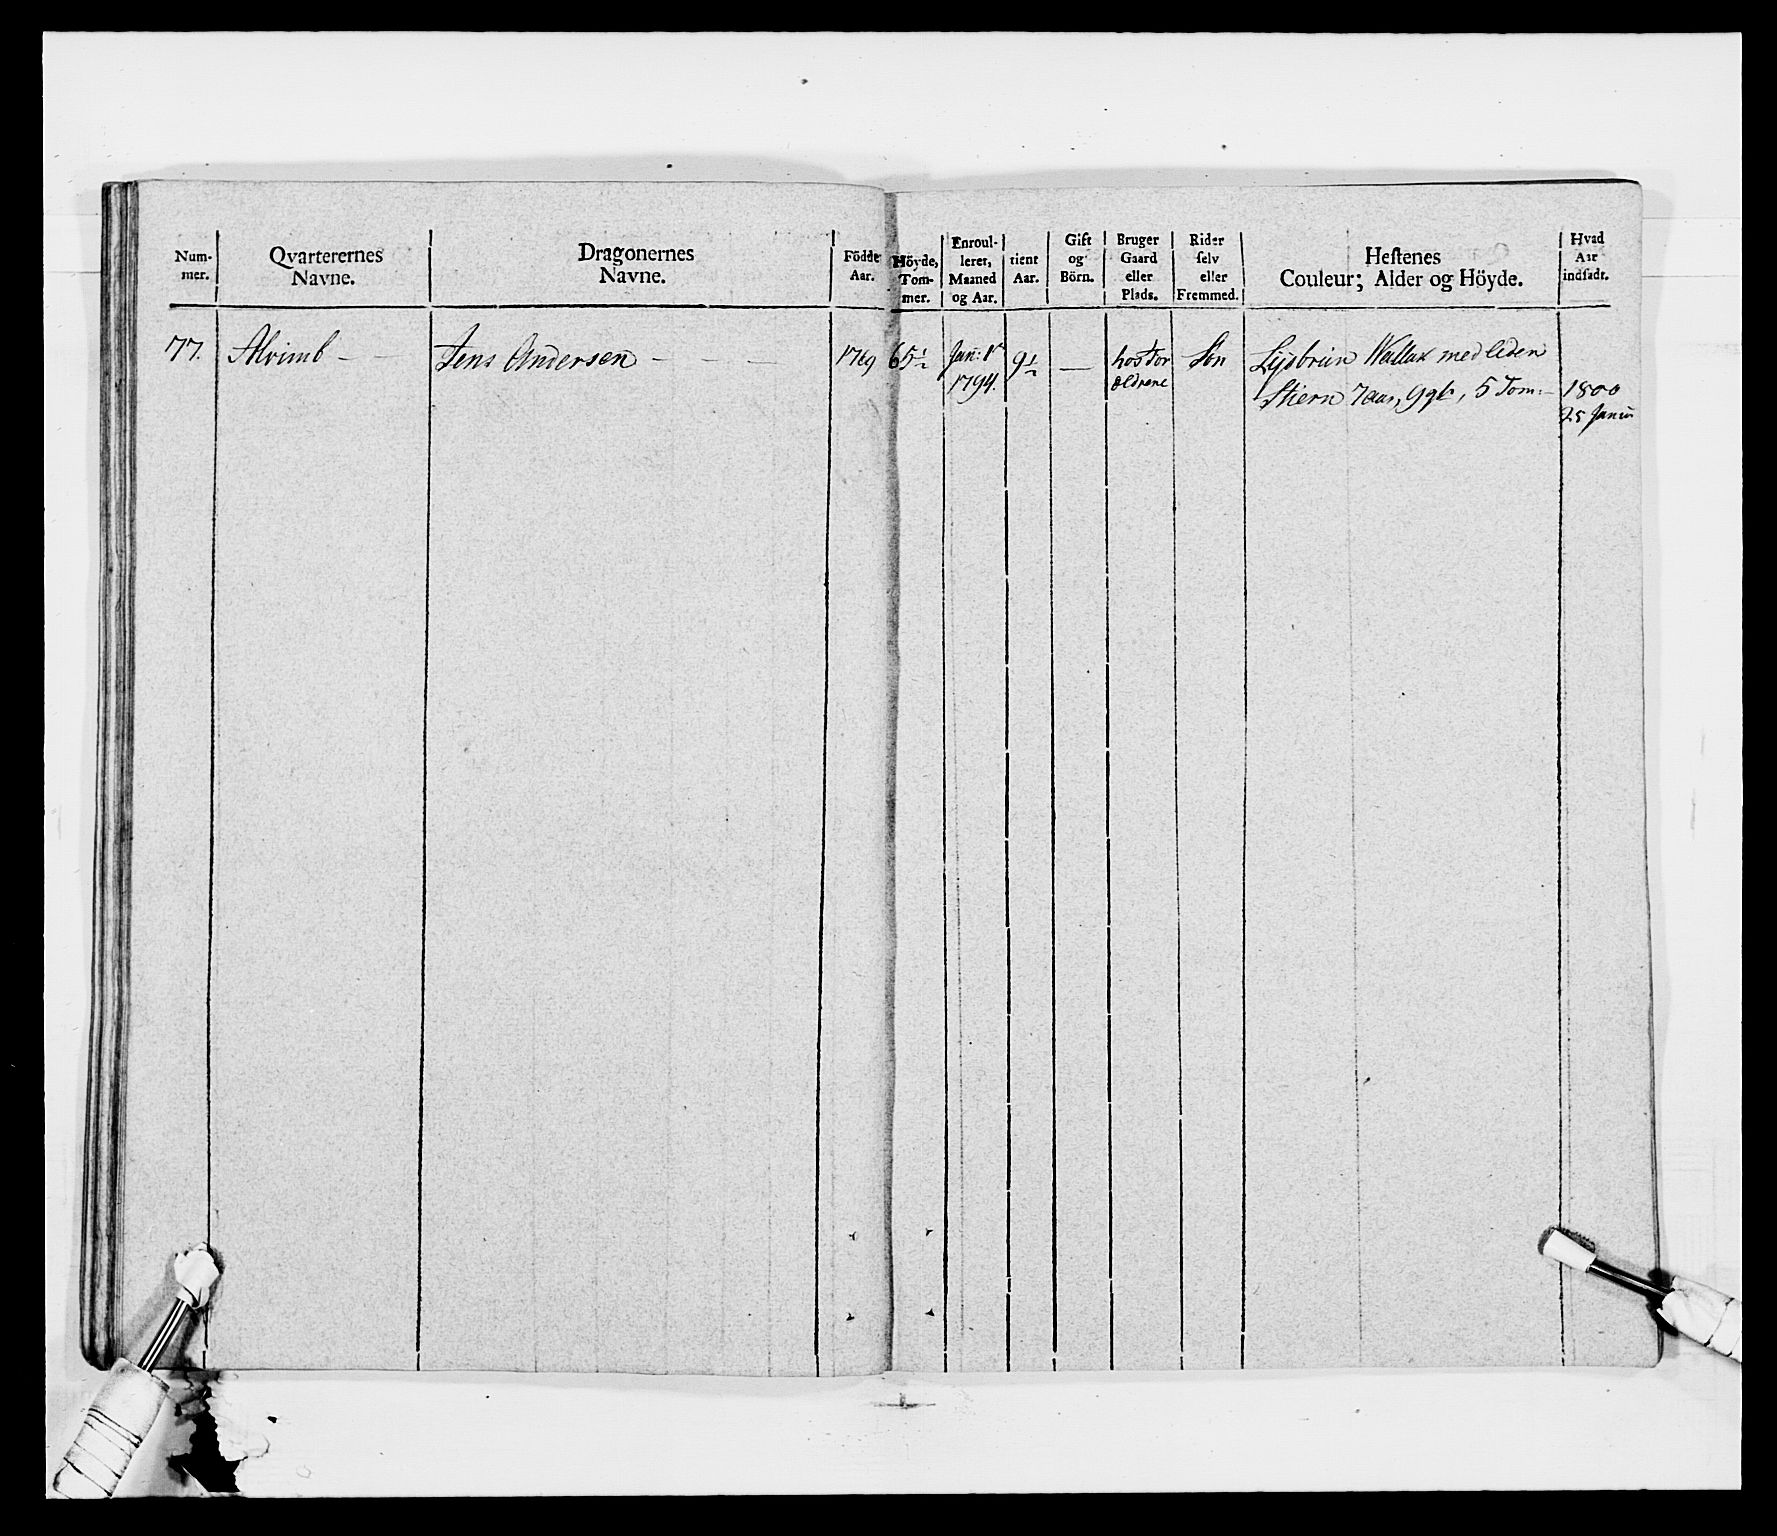 Num-
mer.
Qvarterernes
Navne.
Dragonernes
Navne.
Födde
Aar.
Höyde,
Tom-
mer.
Enroul-
leret,
Maaned
og Aar.
tient
Aar.
Gift
og
Börn.
Bruger
Gaard
eller
Plads.
Rider
selv
eller
Fremmed.
Hestenes
Couleur; Alder og Höyde.
Hvad
Aar
indsadt.
77. Alvimb - - Jens Andersen - - - 1769 65½ Jan: 1ᵗ 9½ — hos For Søn Lysbruun Wallak med liden
1794. ældrene Stiern 7 aar, 9 qt, 5 Tom:- 1800
25 Junii